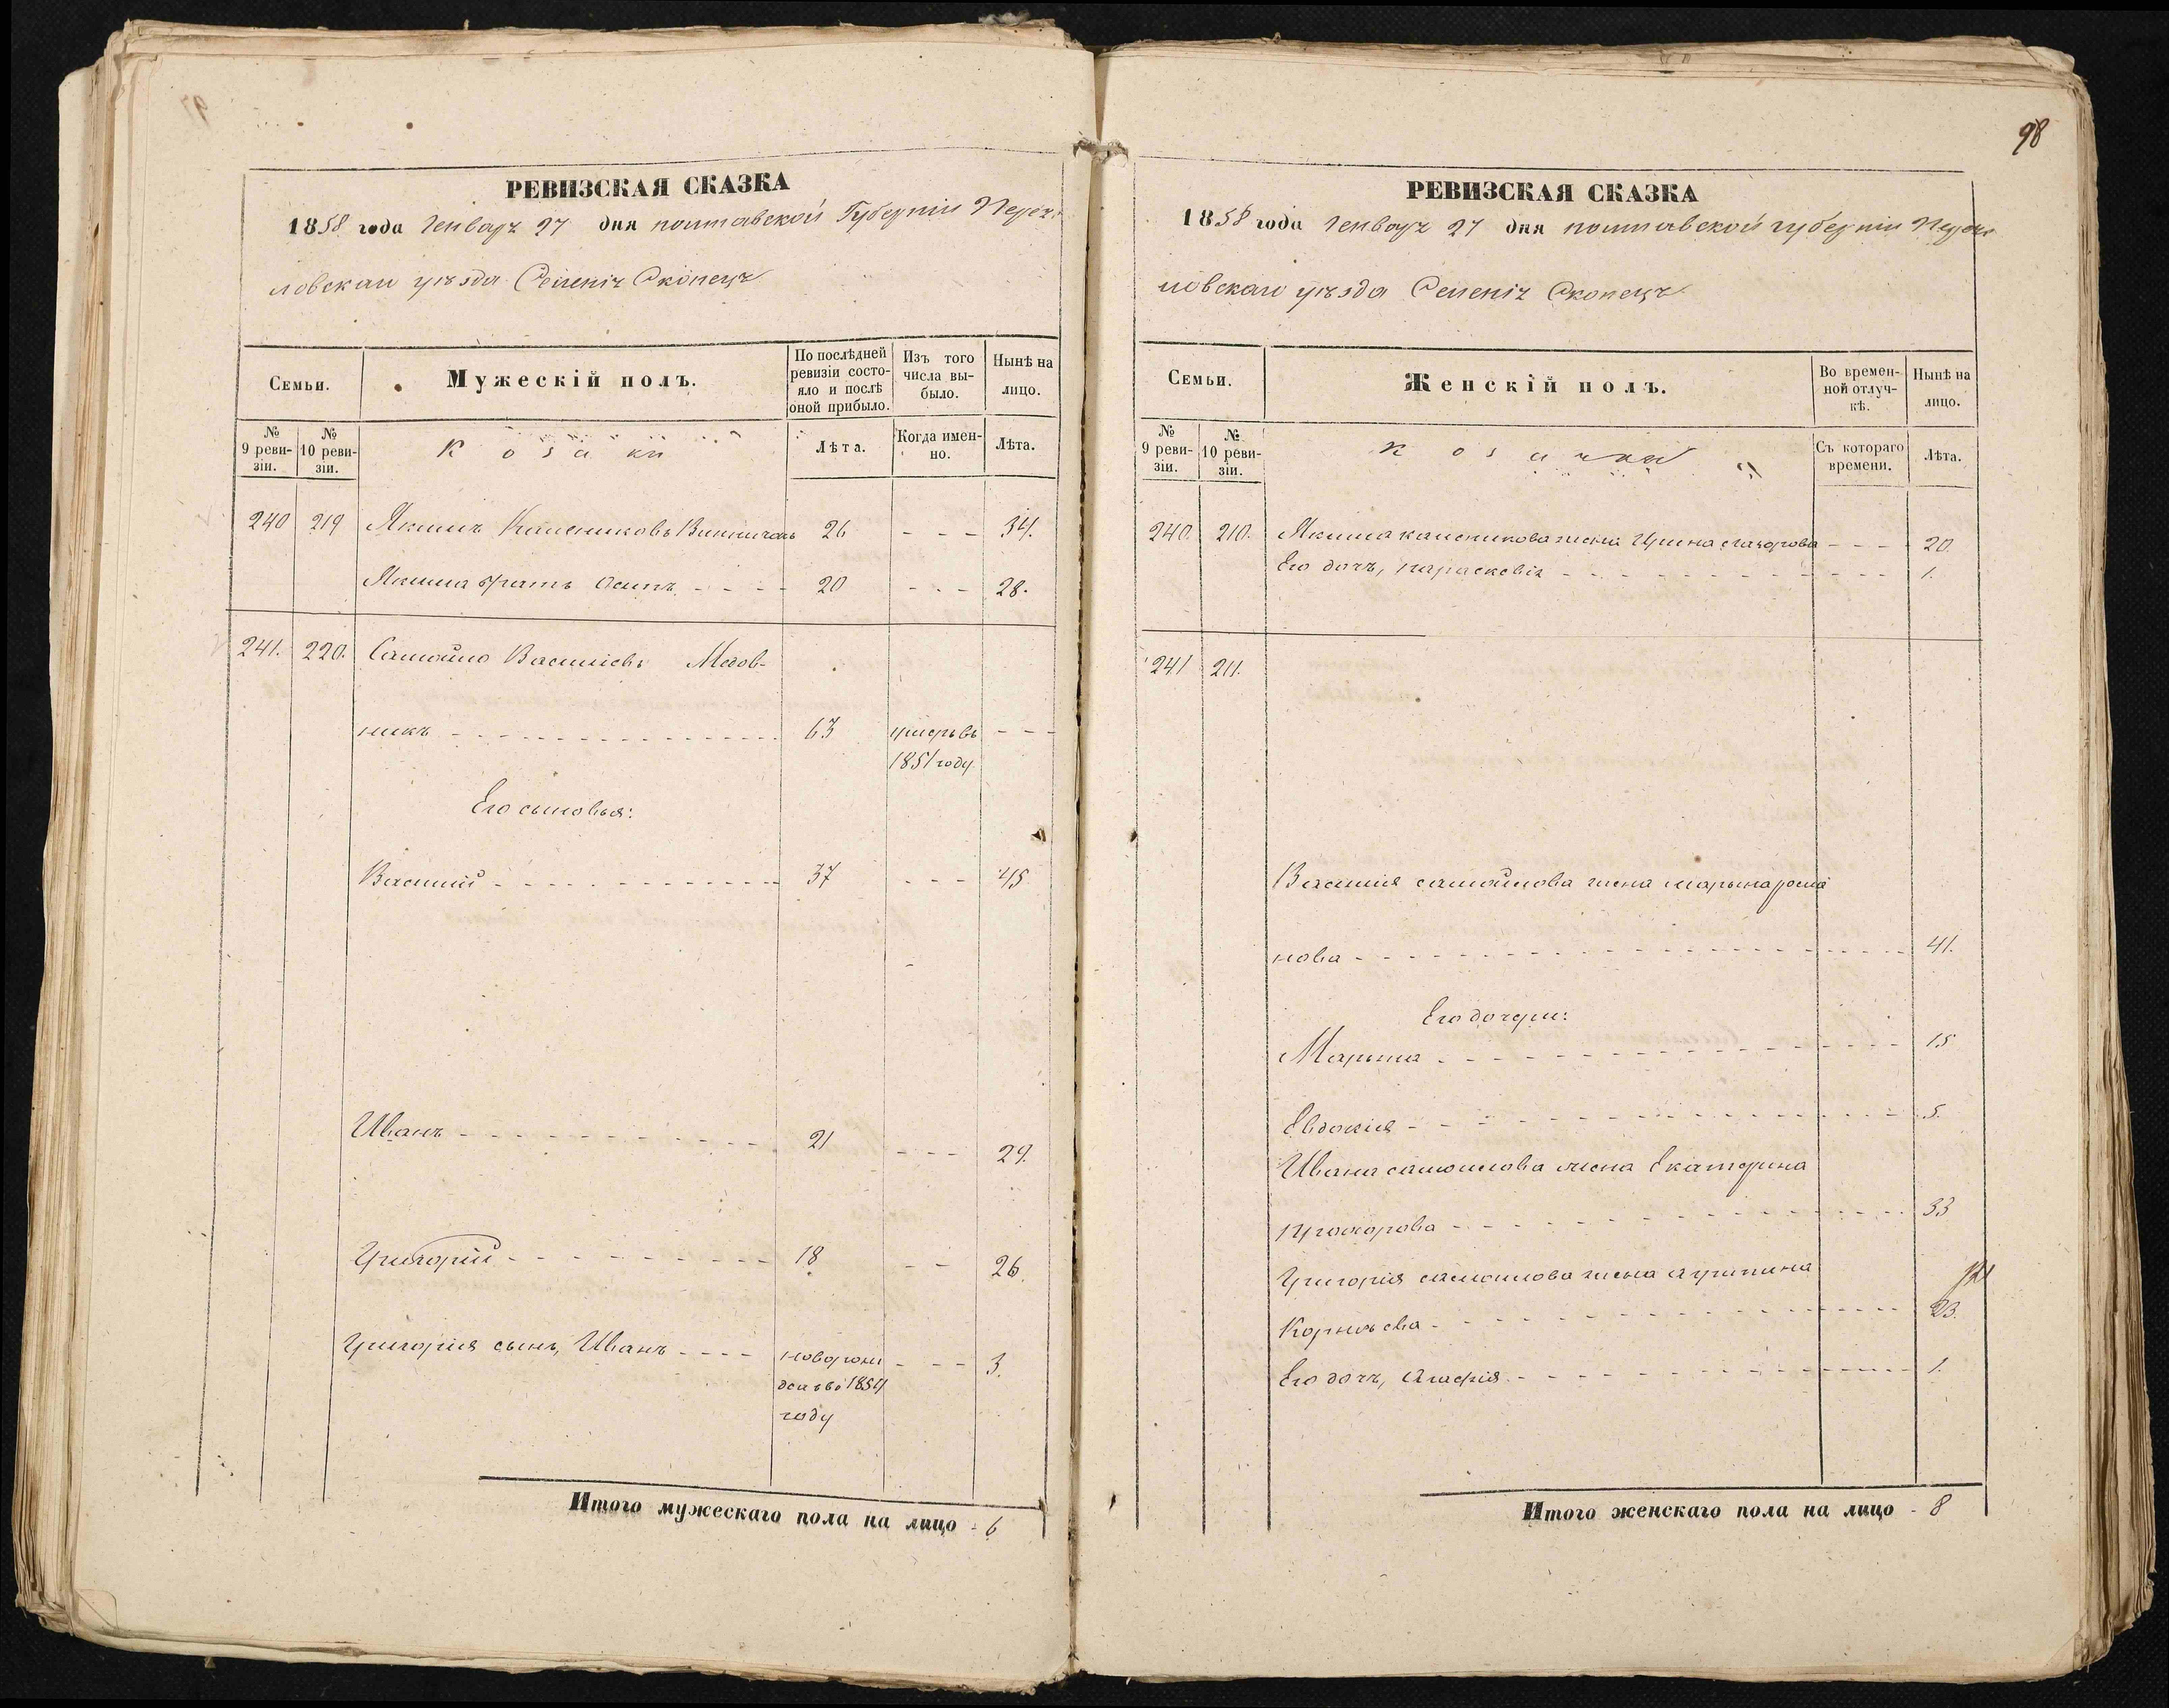 РЕВИЗСКАЯ СКАЗКА
1858 года Генваря 27 дня полтавской Губерніи Перея-
ловскаго уѣзда Селенія Скопецъ
Семьи.
Мужескій полъ.
По послѣдней ревизіи состо-
яло и послѣ оной прибыло.
Изъ того числа вы-
было.
Нынѣ на лицо.
№ 9 реви-
зіи.
№ 10 реви-
зіи.
Козаки
Лѣта.
Когда имен-
но.
Лѣта.
240 219 Якимъ Калениковъ 26 - - - 34.
Якима братъ Осипъ - - - - 20 - - - 28.
241. 220. Самойло Василіевъ Медов-
никъ - - - 63 умеръ въ - - -
1851 году
Его сыновья:
Василій - - - 37 - - - 45
Иванъ - - - 21 - - - 29.
Григорій - - - 18 - - 26.
Григорія сынъ, Иванъ - - - - новорож - - - 3.
денъ въ 1854
году
Итого мужескаго пола на лицо - 6
98
РЕВИЗСКАЯ СКАЗКА
1858 года Генваря 27 дня полтавской губерніи Перея-
ловскаго уѣзда Селенія Скопецъ
Семьи.
Женскій полъ.
Во времен-
ной отлуч-
кѣ.
Нынѣ на лицо.
№ 9 реви-
зіи.
№ 10 реви-
зіи.
Козачки
Съ котораго времени.
Лѣта.
240. 210. Якима каленикова жена Ирина - - - 20.
Его дочь, параскевія - - - 1.
241 211.
Василія самойлова жена марья рома
нова - - - 41.
Его дочери:
Марьина - - - 15
Евдокія - - - 5.
Ивана самойлова жена Екатерина
прохорова - - - 33
Григорія самойлова жена агрипина
Корнѣева - - - 23.
Его дочь, Агафія - - - 1.
Итого женскаго пола на лицо - 8